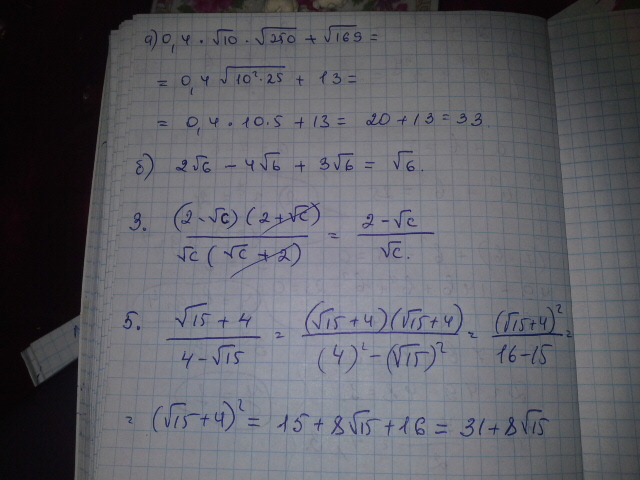 а) 0,4 · √10 · √250 + √169 =
= 0,4 √(10² · 25) + 13 =
= 0,4 · 10 · 5 + 13 = 20 + 13 = 33.
б) 2√6 − 4√6 + 3√6 = √6.
3. (2 − √c)(2 + √c) / √c(√c + 2) = (2 − √c) / √c.
5. (√15 + 4) / (4 − √15) = (√15 + 4)(√15 + 4) / ((4)² − (√15)²) = (√15 + 4)² / (16 − 15) =
= (√15 + 4)² = 15 + 8√15 + 16 = 31 + 8√15